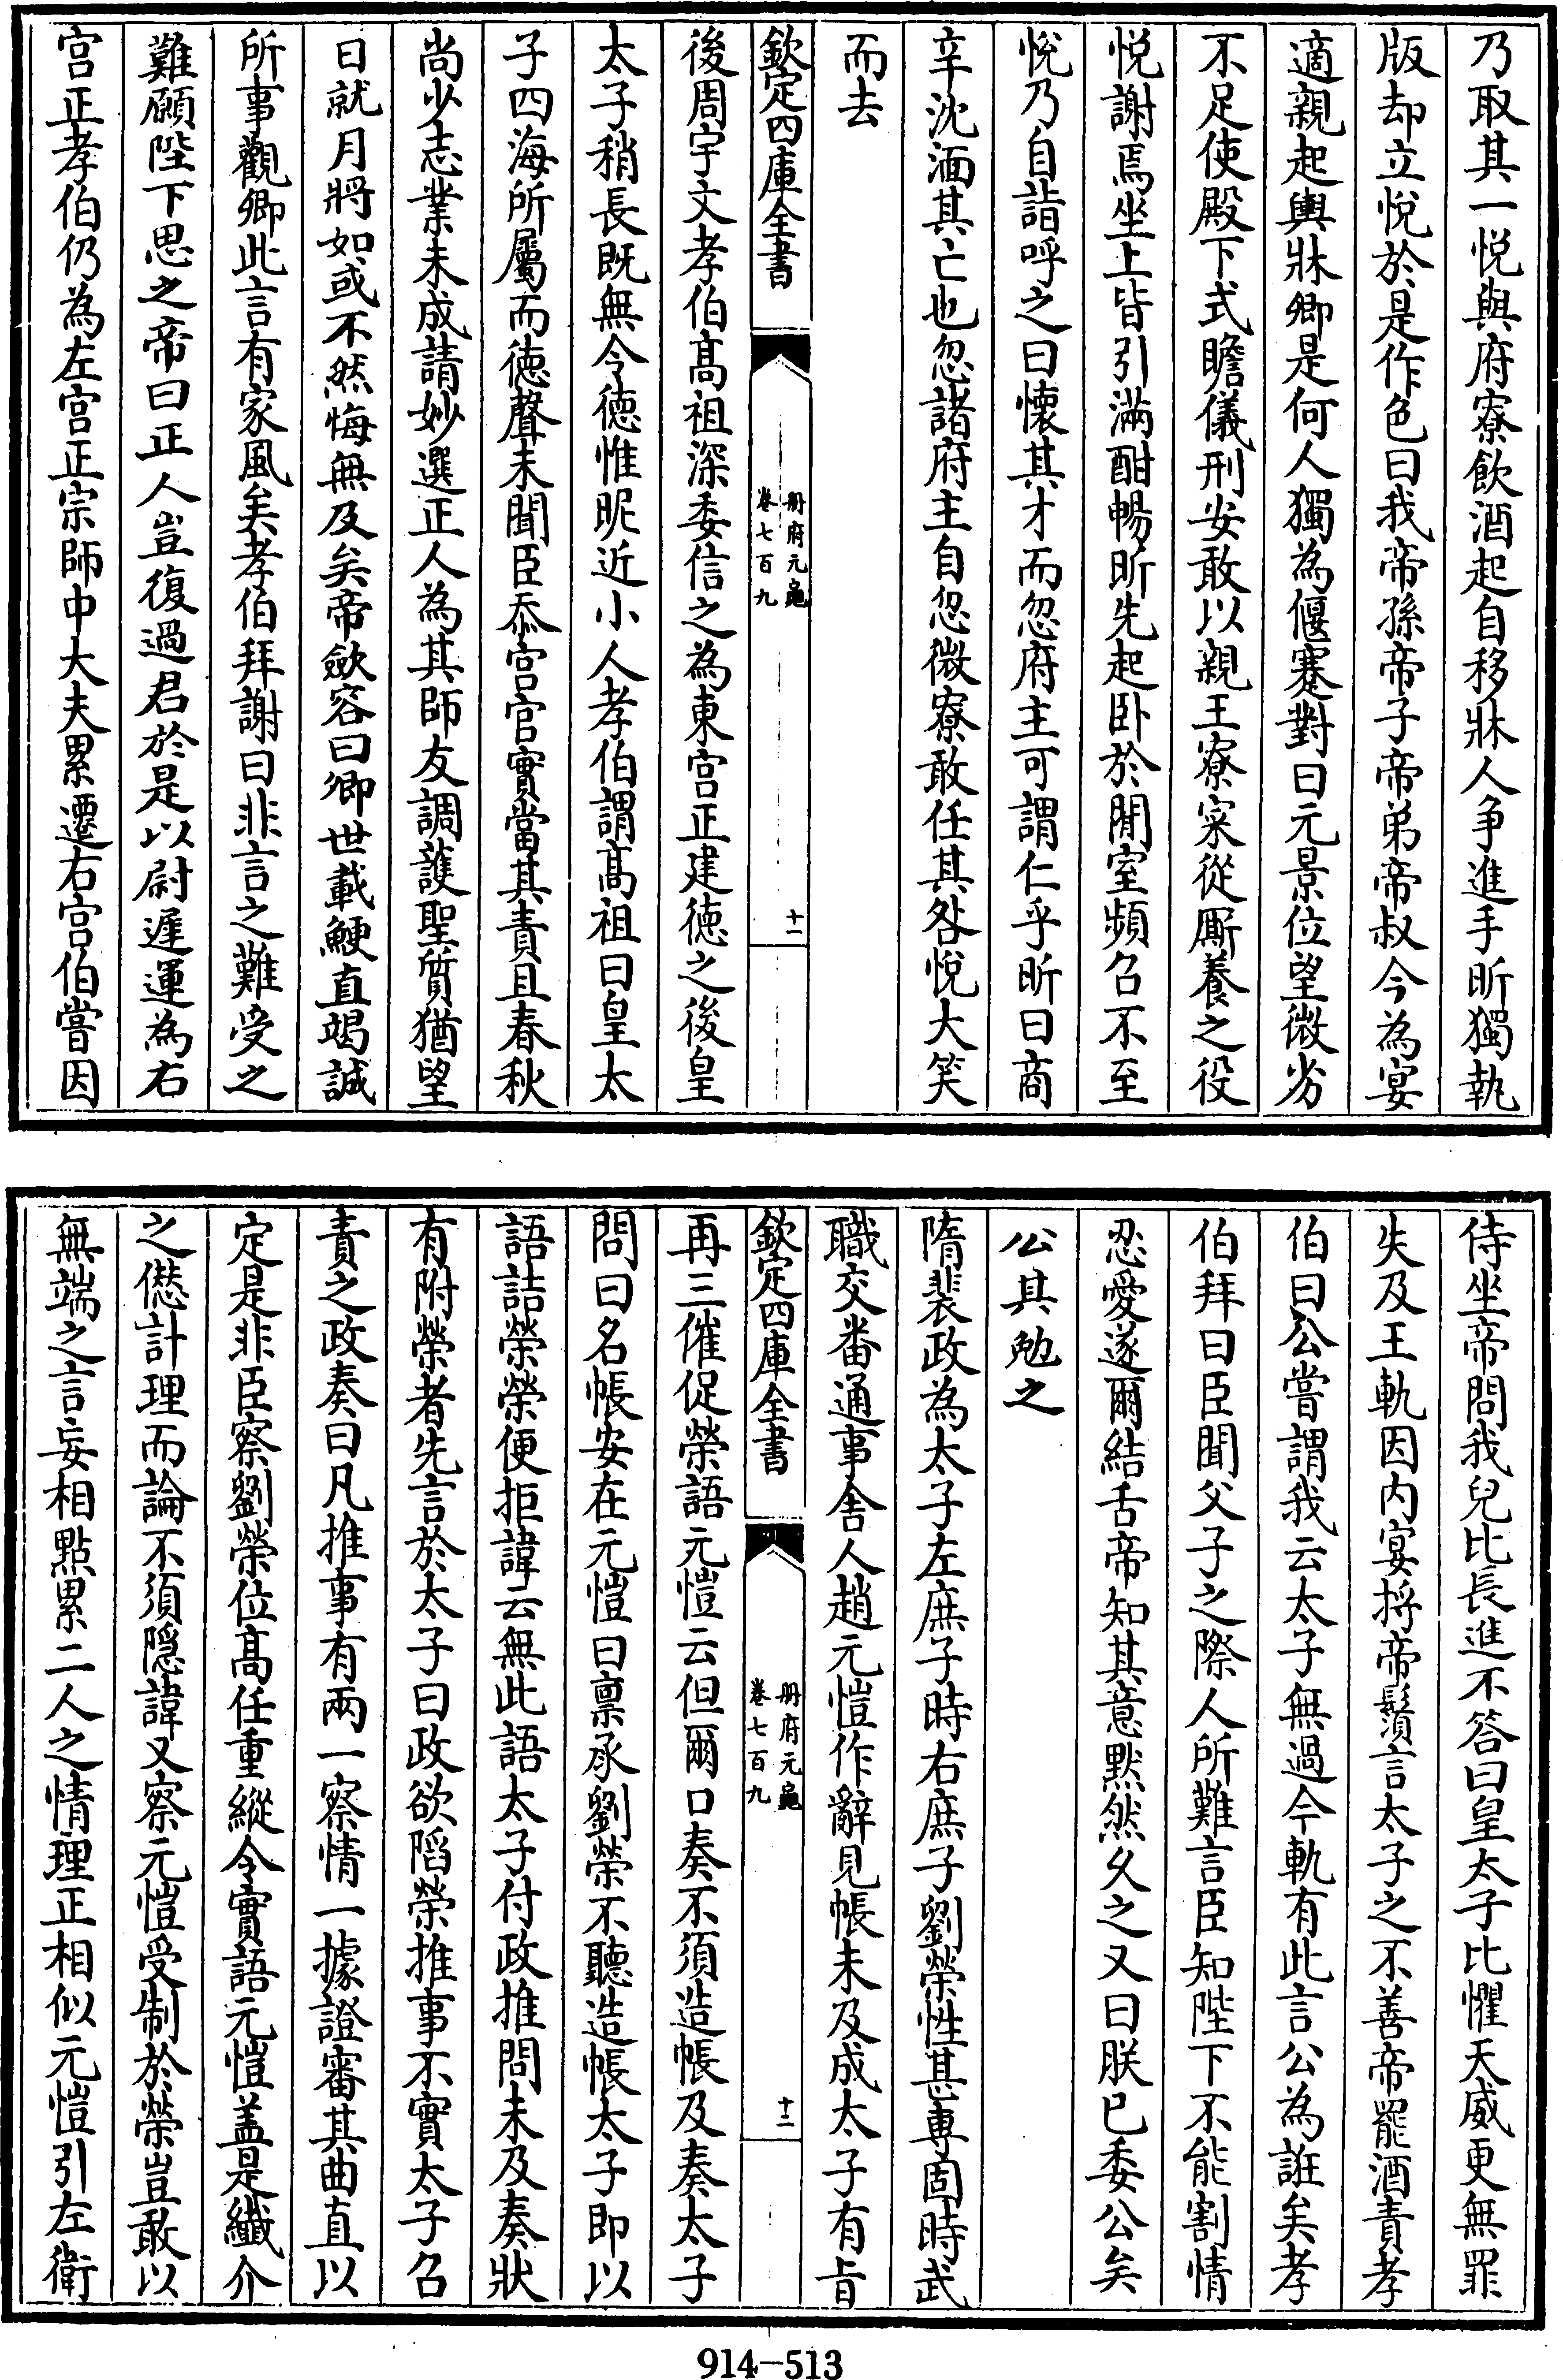 乃取其一悦與府寮飲酒起自移牀人争進手昕獨執
版却立悅於是作色曰我帝孫帝子帝弟帝叔今為宴
適親起輿牀卿是何人獨為偃蹇對曰元景位望微劣
不足使殿下式瞻儀刑安敢以親王寮寀從厮養之役
悦謝焉坐上皆引滿酣暢昕先起卧於閒室頻召不至
悅乃自詣呼之曰懐其才而忽府主可謂仁乎昕曰商
辛沈湎其亡也忽諸府主自忽微寮敢任其咎悅大笑
而去
欽定四庫全書
册府元龜
卷七百九
十一
後周宇文孝伯髙祖深委信之為東宫正建徳之後皇
太子稍長既無令徳惟昵近小人孝伯謂髙祖曰皇太
子四海所屬而徳聲未聞臣忝宫官實當其責且春秋
尚少志業未成請妙選正人為其師友調護聖質猶望
日就月將如或不然悔無及矣帝歛容曰卿世載鯁直竭誠
所事觀卿此言有家風矣孝伯拜謝曰非言之難受之
難願陛下思之帝曰正人豈復過君於是以尉遲運為右
宫正孝伯仍為左宫正宗師中大夫累遷右宫伯嘗因
侍坐帝問我兒比長進不答曰皇太子比懼天威更無罪
失及王軌因内宴捋帝鬚言太子之不善帝罷酒責孝
伯曰公嘗謂我云太子無過今軌有此言公為誑矣孝
伯拜曰臣聞父子之際人所難言臣知陛下不能割情
忍愛遂爾結舌帝知其意黙然久之又曰朕已委公矣
公其勉之
隋裴政為太子左庶子時右庶子劉榮性甚專固時武
職交畨通事舍人趙元愷作辭見帳未及成太子有旨
欽定四庫全書
册府元龜
卷七百九
十二
再三催促榮語元愷云但爾口奏不須造帳及奏太子
問曰名帳安在元愷曰稟承劉榮不聽造帳太子即以
語詰榮榮便拒諱云無此語太子付政推問未及奏狀
有附榮者先言於太子曰政欲䧟榮推事不實太子召
責之政奏曰凡推事有兩一察情一據證審其曲直以
定是非臣察劉榮位髙任重縱令實語元愷盖是纎介
之僁計理而論不須隠諱又察元愷受制於榮豈敢以
無端之言妄相㸃累二人之情理正相似元愷引左衛
914-513